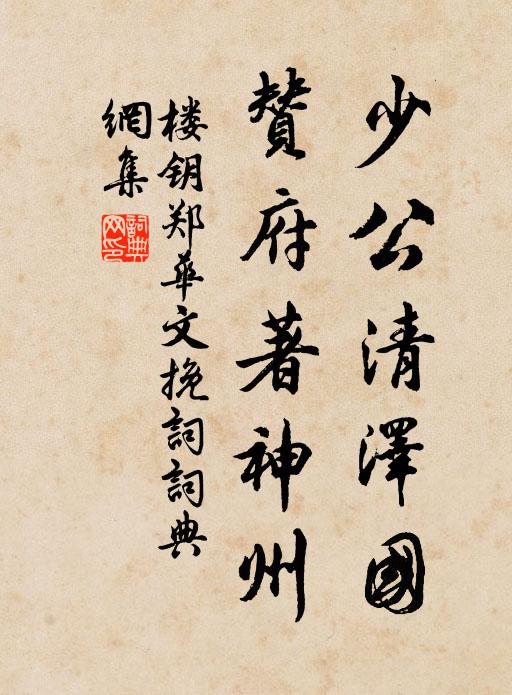 少公清澤國
贊府著神州
楼钥郑華文挽詞詞典
網集
詞典
网印